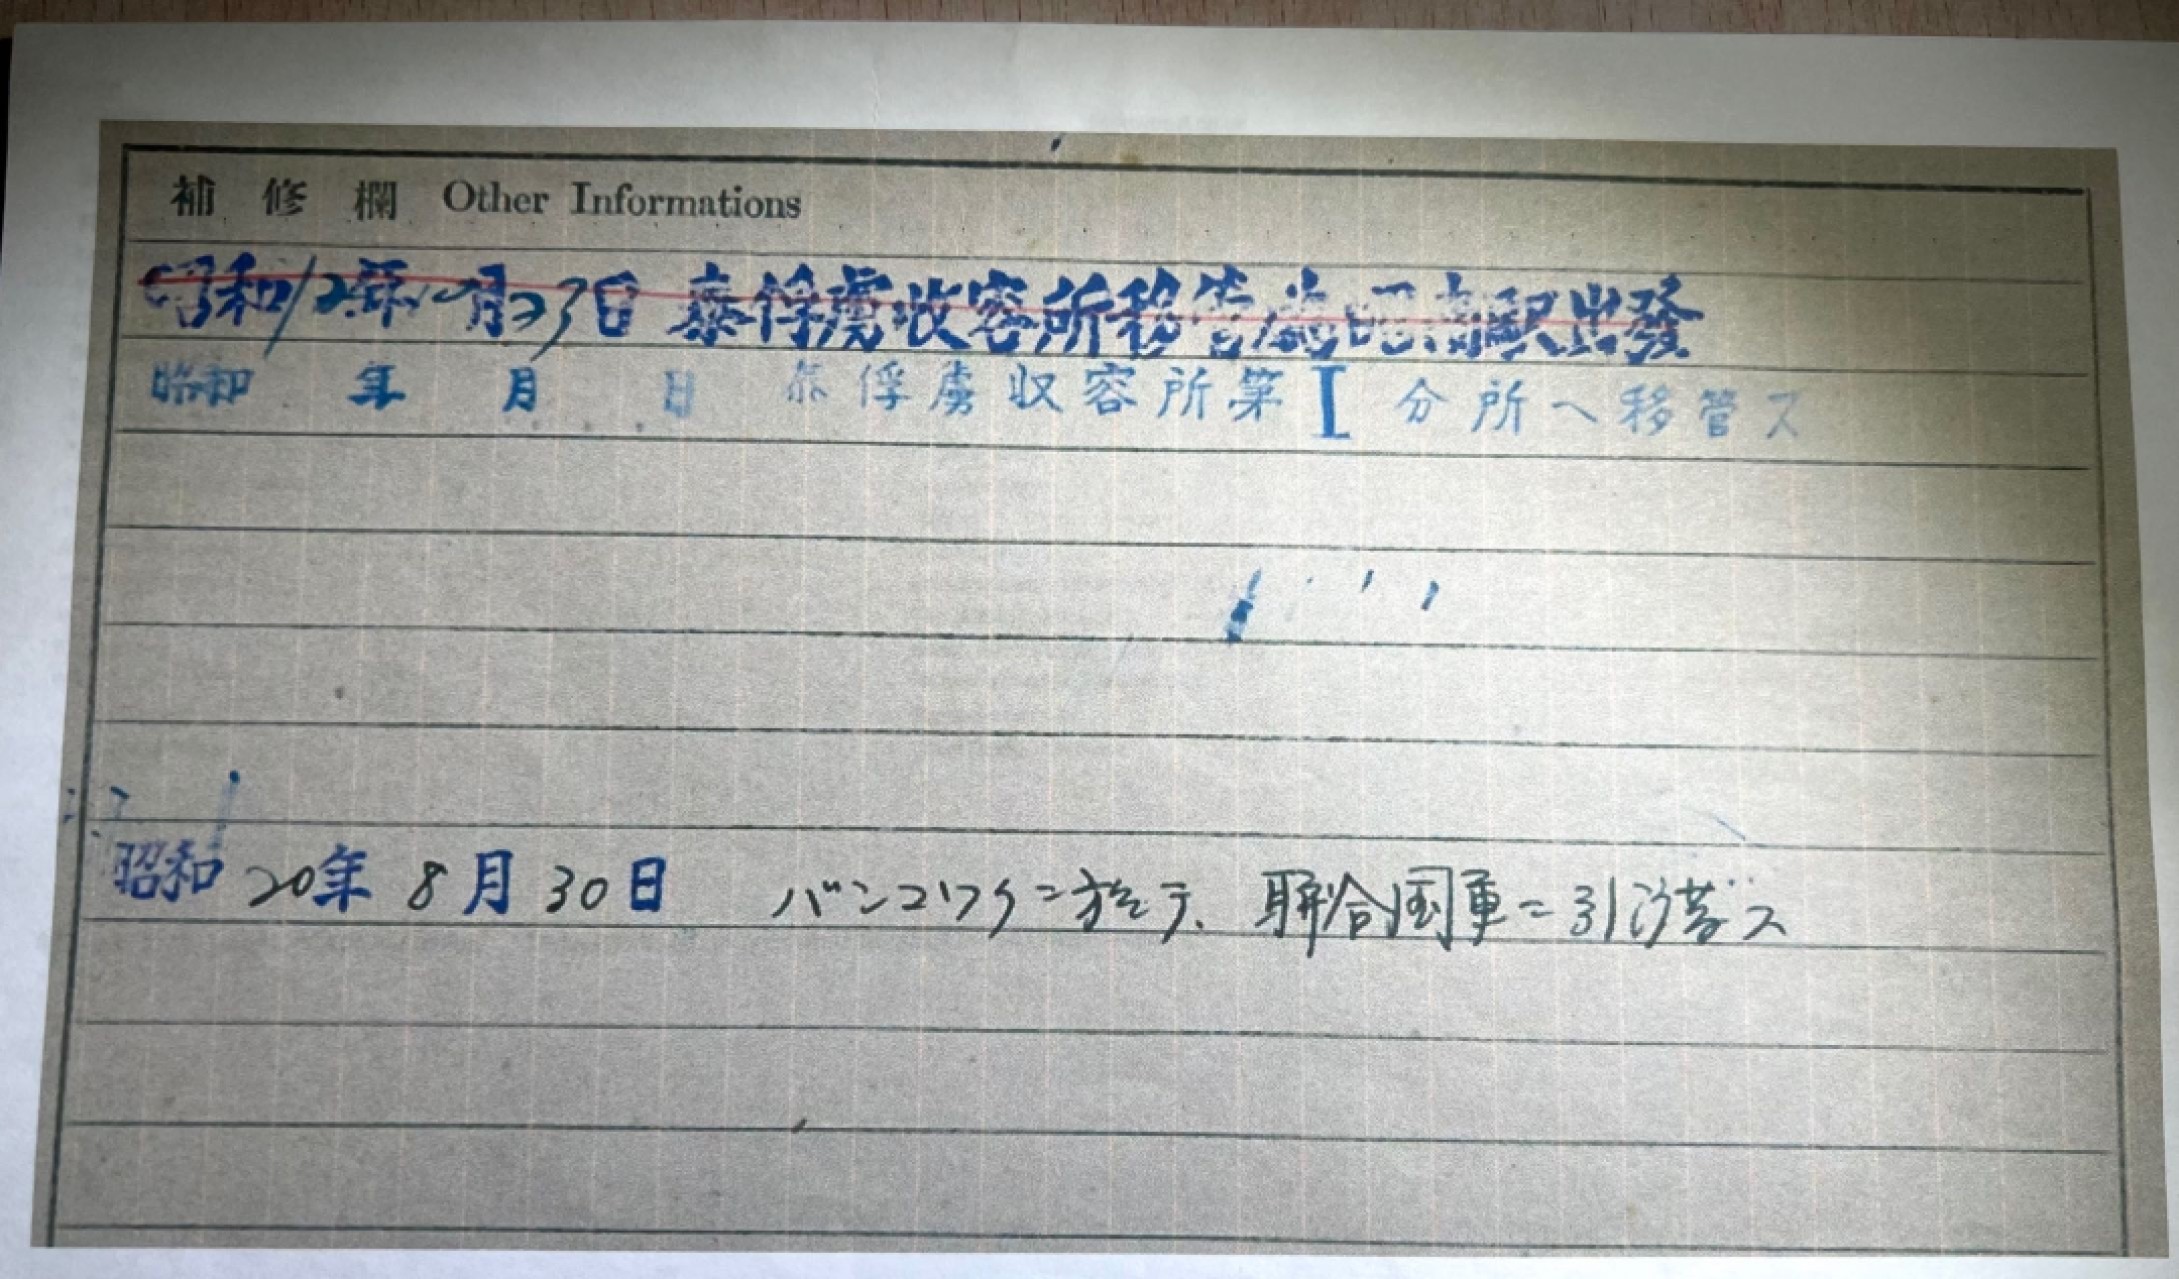 補修欄 Other Informations
昭和 年 月23日 泰俘虜收容所移管為昭南駅出發
昭和 年 月 日 泰俘虜収容所第I分所へ移管ス
昭和20年8月30日 バンコックニ於テ、聯合国軍ニ引渡ス